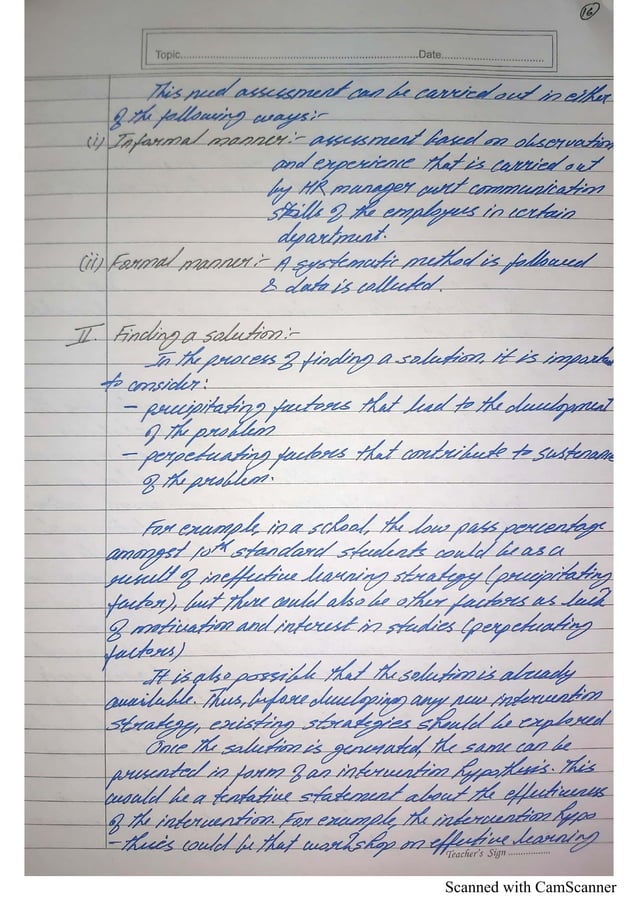 16
Topic........................Date........................
This need assessment can be carried out in either
of the following ways:-
(i) Informal manner:- assessment based on observation
and experience that is carried out
by HR manager cwrt communication
skills of the employees in certain
department.
(ii) Formal manner:- A systematic method is followed
& data is collected.
II. Finding a solution:-
In the process of finding a solution, it is importa
to consider:
- precipitating factors that lead to the development
of the problem
- perpetuating factors that contribute to sustenance
of the problem.
For example, in a school, the low pass percentage
amongst 10th standard students could be as a
result of ineffective learning strategy (precipitating
factor), but there could also be other factors as lack
of motivation and interest in studies (perpetuating
factors)
It is also possible that the solution is already
available. Thus, before developing any new intervention
strategy, existing strategies should be explored
Once the solution is generated, the same can be
presented in form of an intervention hypothesis. This
would be a tentative statement about the effectiveness
of the intervention. For example, the intervention hypo
-thesis could be that workshop on effective learning
Teacher's Sign ................
Scanned with CamScanner